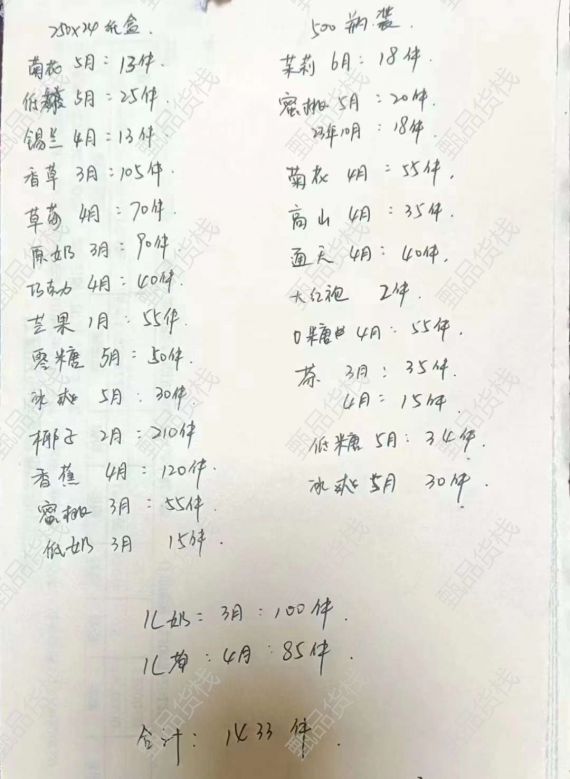 250x24纸盒
菊花 5月：13件.
低糖 5月：25件.
锡兰 4月：13件
香草 3月：105件.
草莓 4月：70件.
原奶 3月：90件
巧克力 4月：40件.
芒果 1月：55件.
零糖 5月：50件
冰爽 5月：30件.
椰子 2月：210件
香蕉 4月：120件.
蜜桃 3月：55件
低奶 3月 15件.
500瓶装
茉莉 6月：18件.
蜜桃 5月：20件
23年10月：18件.
菊花 4月：55件.
高山 4月：35件.
通天 4月：40件.
大红袍 2件.
0糖 4月：55件.
茶 3月：35件.
4月：15件.
低糖 5月：34件.
冰爽 5月 30件.
1L奶：3月：100件.
1L草：4月：85件.
合计：1433件.
甄品货栈